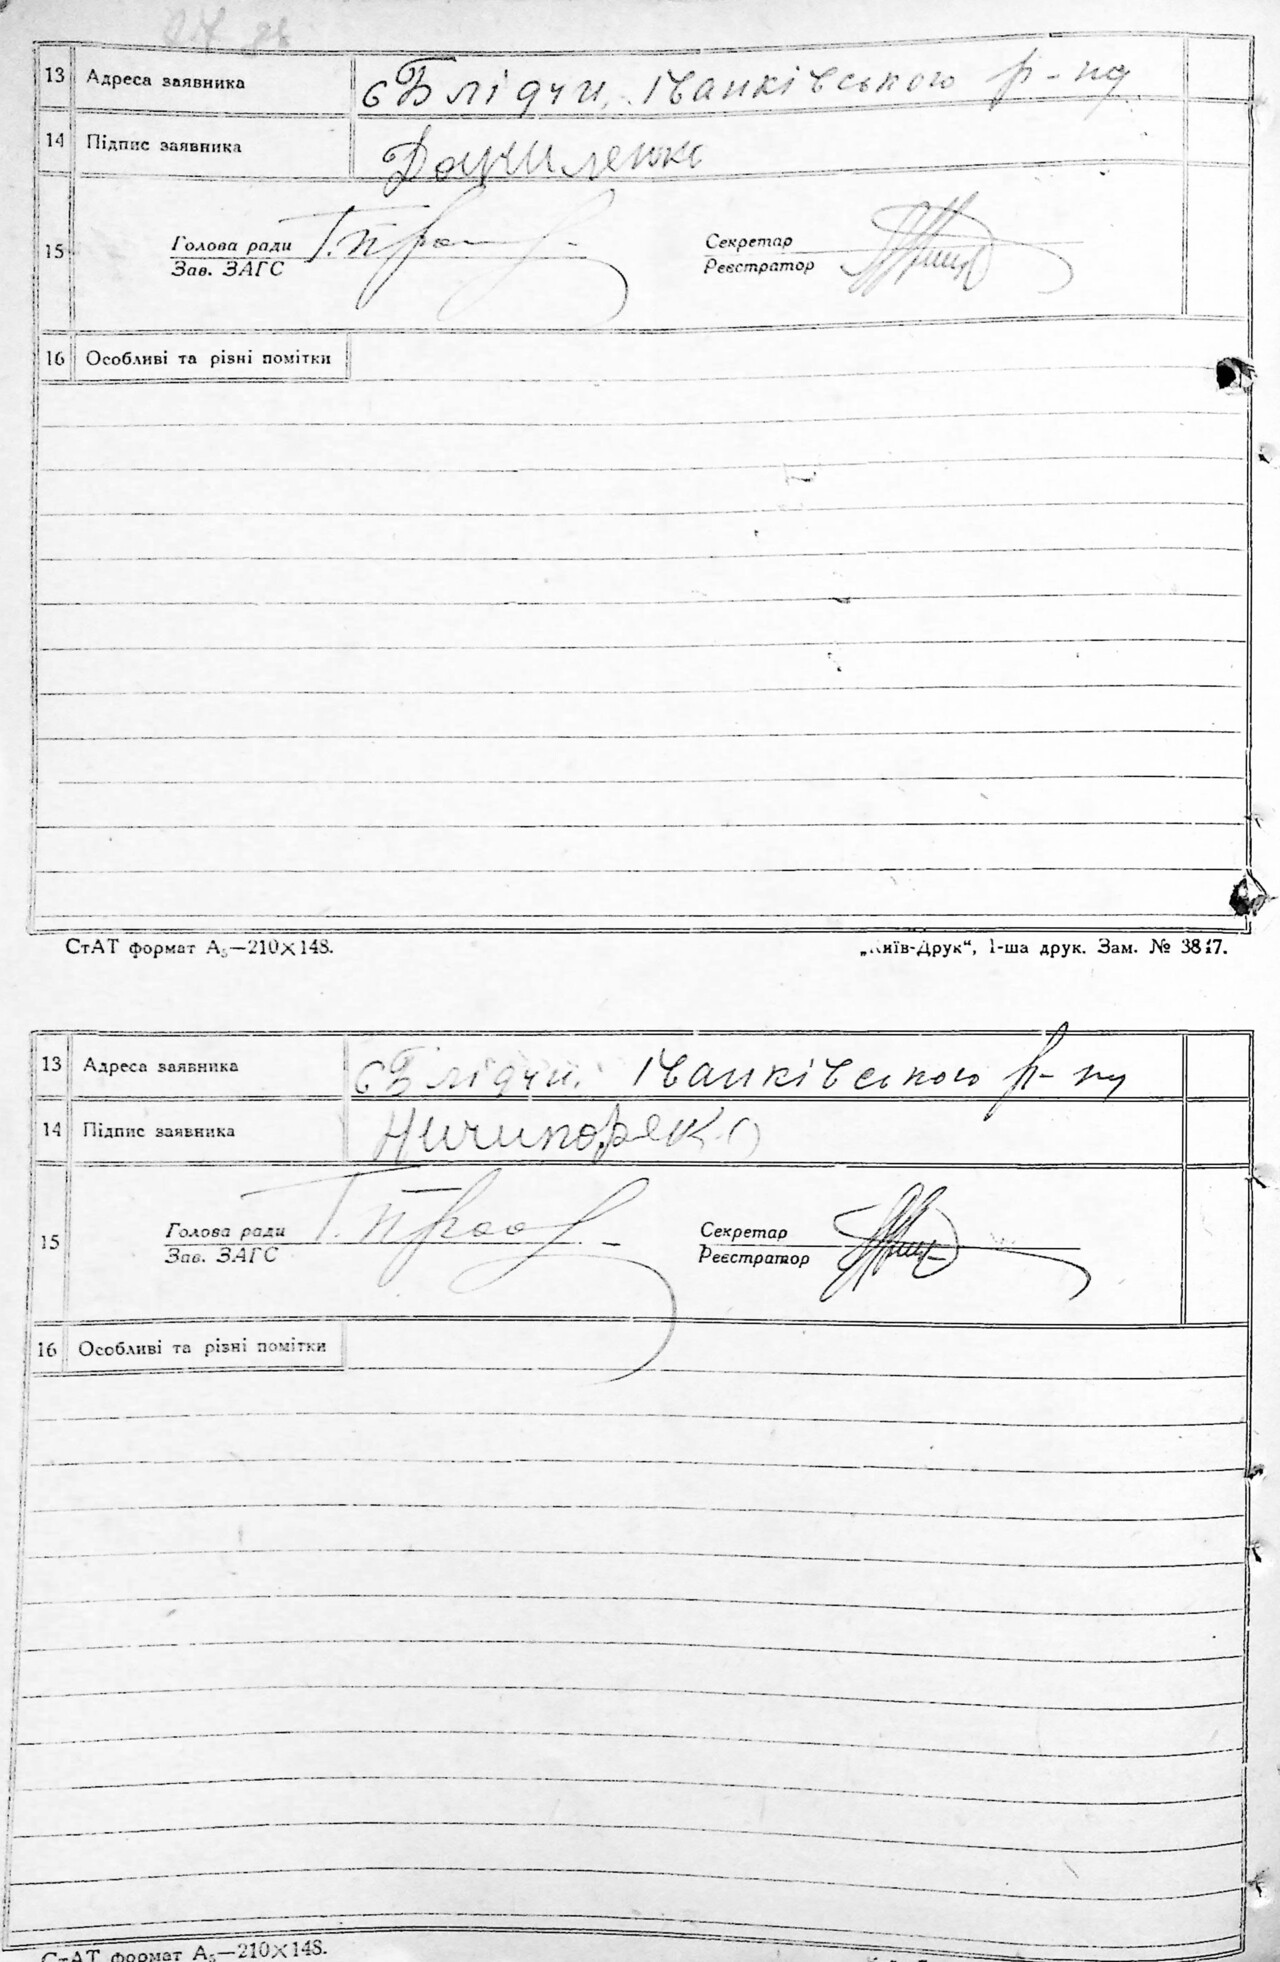 13 Адреса заявника с Блідчи, Іванківського р-ну
14 Підпис заявника Даниленко
15 Голова ради
Зав. ЗАГС
Секретар
Реєстратор
16 Особливі та різні помітки
СтАТ формат А₅—210×148. „Київ-Друк“, 1-ша друк. Зам. № 3817.
13 Адреса заявника с Блідчи. Іванківського р-ну
14 Підпис заявника Ничипоренко
15 Голова ради
Зав. ЗАГС
Секретар
Реєстратор
16 Особливі та різні помітки
СтАТ формат А₅—210×148.